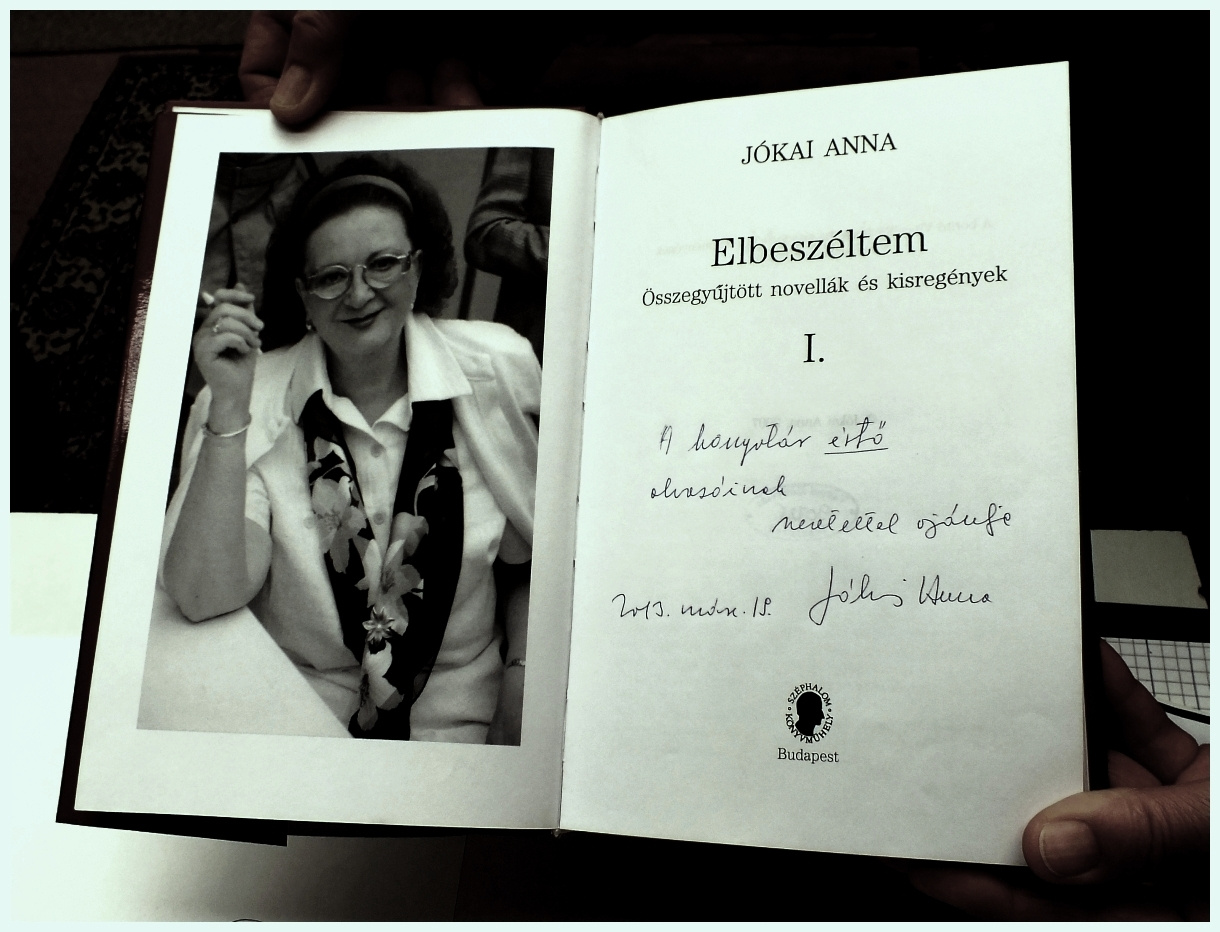 JÓKAI ANNA
Elbeszéltem
Összegyűjtött novellák és kisregények
I.
A könyvtár értő
olvasóinak
szeretettel ajánlja
2013. márc. 18. Jókai Anna
SZÉPHALOM KÖNYVMŰHELY
Budapest